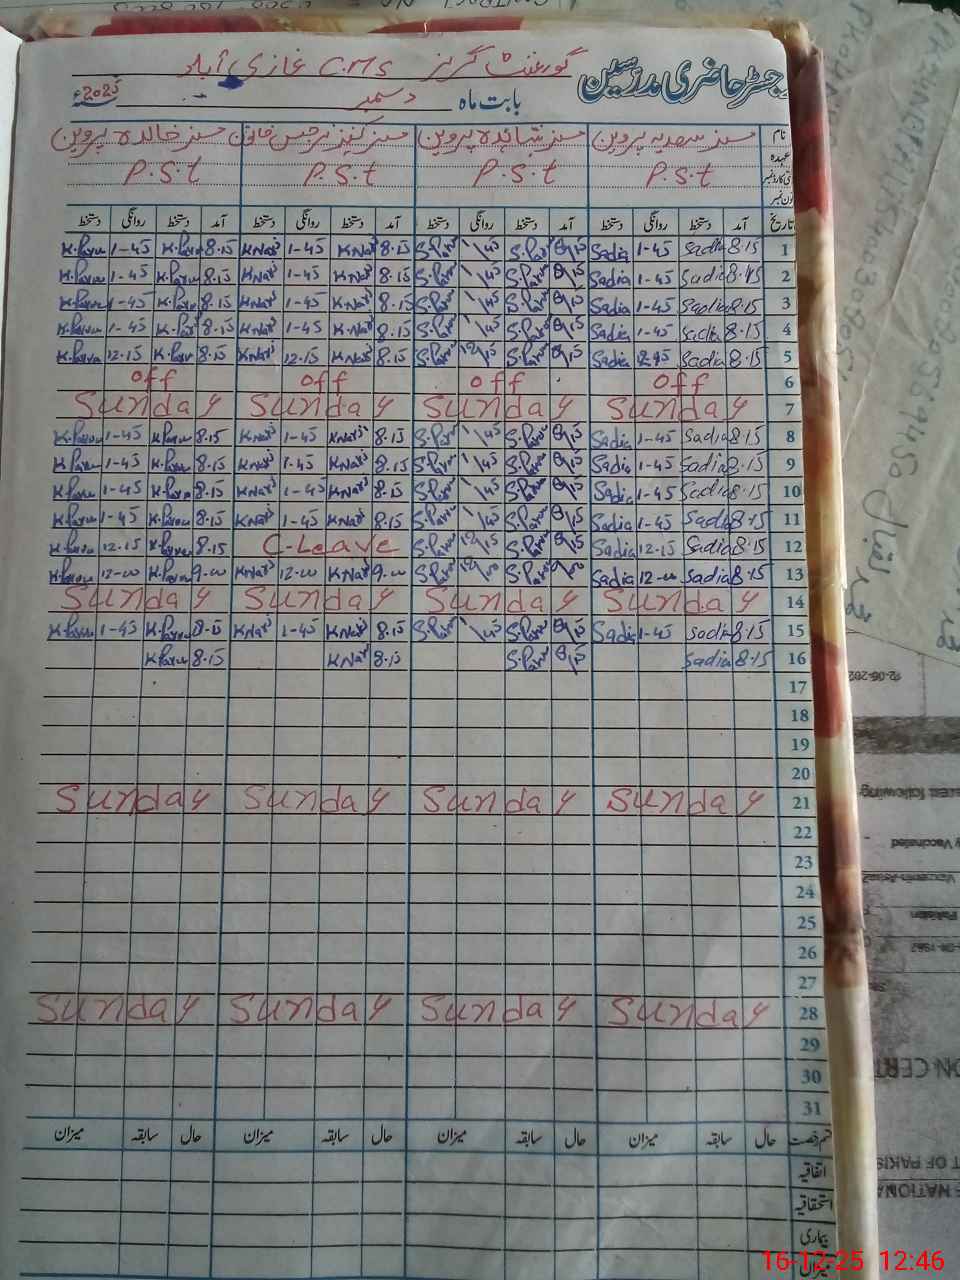 رجسٹر حاضری مدرسین
گورنمنٹ گرلز C.M.S غازی آباد
بابت ماہ دسمبر 2025ء
نام مسز سعدیہ پروین مسز شاہدہ پروین مسز کنیز نرجس خاتون مسز خالدہ پروین
عہدہ P.S.t P.S.t P.S.t P.S.t
تاریخ آمد دستخط روانگی دستخط آمد دستخط روانگی دستخط آمد دستخط روانگی دستخط آمد دستخط روانگی دستخط
1 8.15 Sadia 1-45 Sadia 8/15 S.Parv 1/45 S.Parv 8.15 KNarj 1-45 KNarj 8.15 K.Parv 1-45 K.Parv
2 8.15 Sadia 1-45 Sadia 8/15 S.Parv 1/45 S.Parv 8.15 KNarj 1-45 KNarj 8.15 K.Parv 1-45 K.Parv
3 8.15 Sadia 1-45 Sadia 8/15 S.Parv 1/45 S.Parv 8.15 KNarj 1-45 KNarj 8.15 K.Parv 1-45 K.Parv
4 8.15 Sadia 1-45 Sadia 8/15 S.Parv 1/45 S.Parv 8.15 KNarj 1-45 KNarj 8.15 K.Parv 1-45 K.Parv
5 8.15 Sadia Sadia 8/15 S.Parv 12/15 S.Parv 8.15 KNarj 12.15 KNarj 8.15 K.Parv 12.15 K.Parv
6 off off off off
7 Sunday Sunday Sunday Sunday
8 8.15 Sadia 1-45 Sadia 8/15 S.Parv 1/45 S.Parv 8.15 KNarj 1-45 KNarj 8.15 K.Parv 1-45 K.Parv
9 8.15 Sadia 1-45 Sadia 8/15 S.Parv 1/45 S.Parv 8.15 KNarj 1-45 KNarj 8.15 K.Parv 1-45 K.Parv
10 8.15 Sadia 1-45 Sadia 8/15 S.Parv 1/45 S.Parv 8.15 KNarj 1-45 KNarj 8.15 K.Parv 1-45 K.Parv
11 8.15 Sadia 1-45 Sadia 8/15 S.Parv 1/45 S.Parv 8.15 KNarj 1-45 KNarj 8.15 K.Parv 1-45 K.Parv
12 8.15 Sadia 12-15 Sadia 8/15 S.Parv 12/15 S.Parv C-Leave 8.15 K.Parv 12.15 K.Parv
13 8.15 Sadia 12-00 Sadia 9/00 S.Parv 12/00 S.Parv 9-00 KNarj 12-00 KNarj 9-00 K.Parv 12-00 K.Parv
14 Sunday Sunday Sunday Sunday
15 8.15 Sadia 1-45 Sadia 8/15 S.Parv 1/45 S.Parv 8.15 KNarj 1-45 KNarj 8.15 K.Parv 1-45 K.Parv
16 8.15 Sadia 8/15 S.Parv 8.15 KNarj 8.15 K.Parv
17
18
19
20
21 Sunday Sunday Sunday Sunday
22
23
24
25
26
27
28 Sunday Sunday Sunday Sunday
29
30
31
قسم رخصت حال سابقہ میزان حال سابقہ میزان حال سابقہ میزان حال سابقہ میزان
اتفاقیہ
استحقاقیہ
بیماری
میزان
16-12-25 12:46